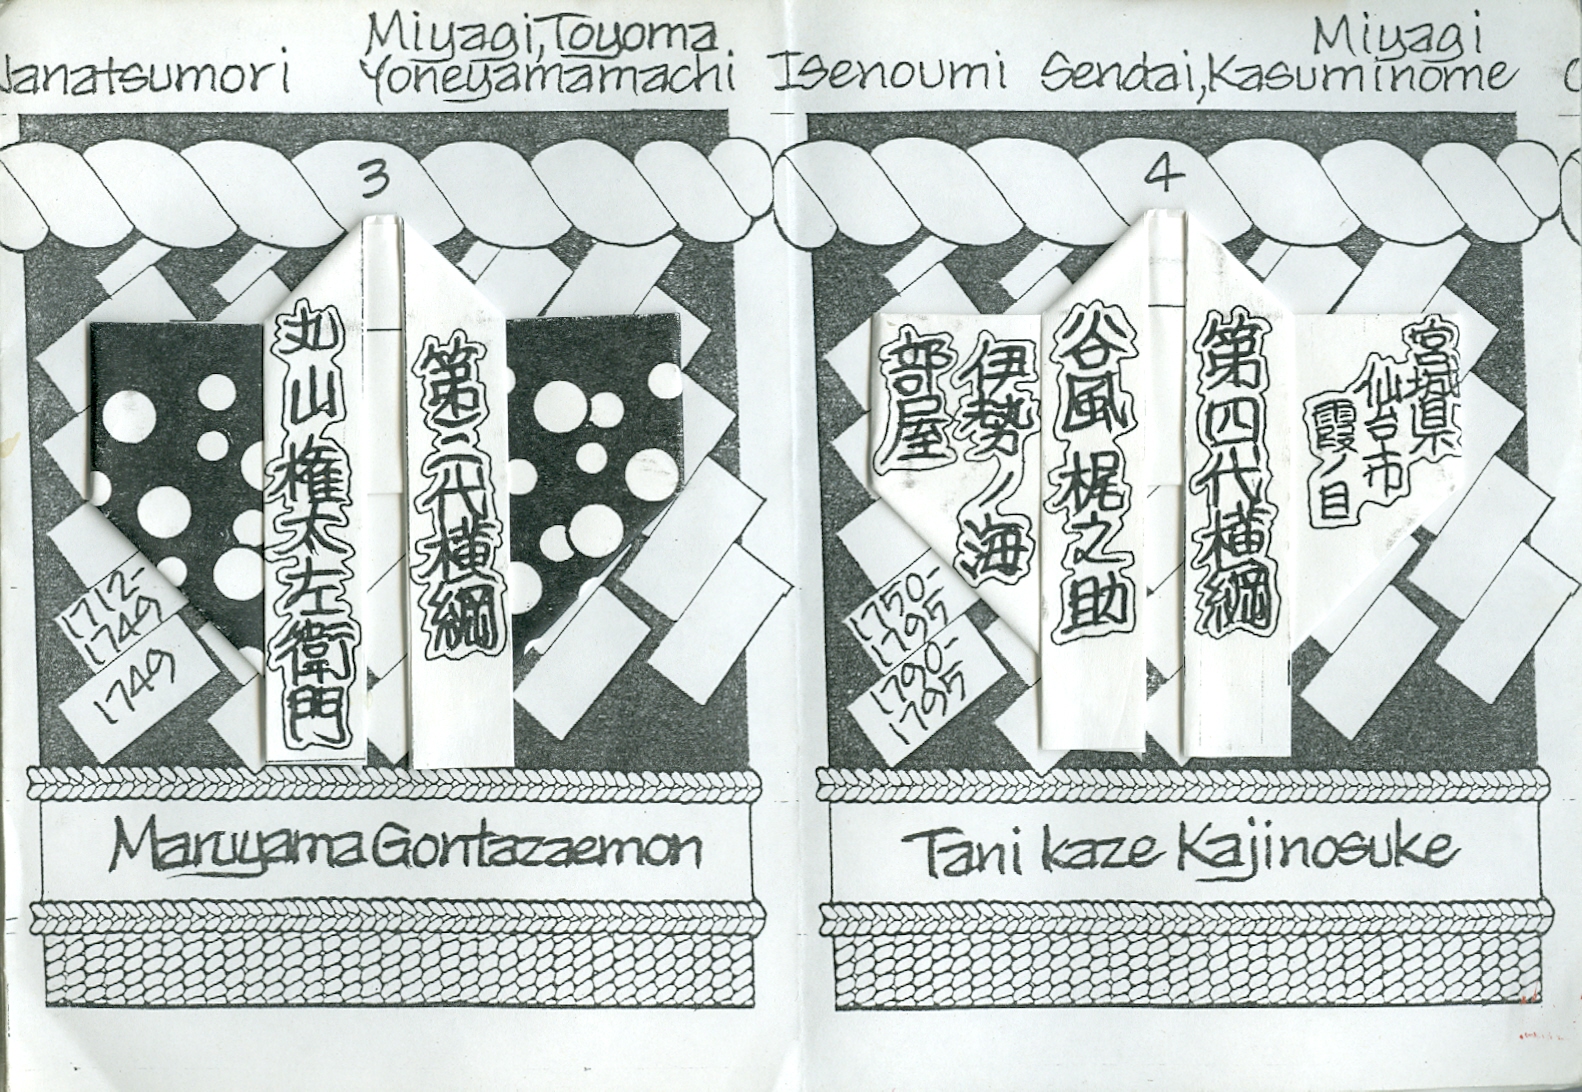 Nanatsumori
Miyagi, Toyoma
Yoneyamamachi
3
丸山権太左衛門
第三代横綱
1712-
1749
1749
Maruyama Gontazaemon
Isenoumi
Miyagi
Sendai, Kasuminome
4
宮城県
仙台市
霞ノ目
第四代横綱
谷風梶之助
伊勢ノ海
部屋
1750-
1795
1790-
1795
Tanikaze Kajinosuke